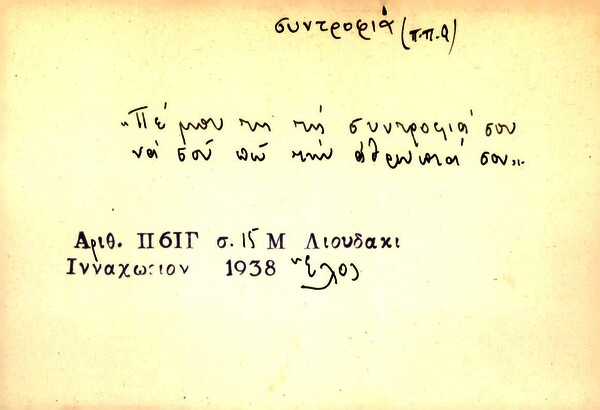 συντροφιά (π.π.Ω)
"Πέ μου τη τή συντροφιά σου
νά σοῦ πῶ τήν ἀθρωπιά σου".
Αριθ. Π6ΙΓ σ. 15 Μ Λιουδακι
Ινναχωριον 1938 Ἕλος